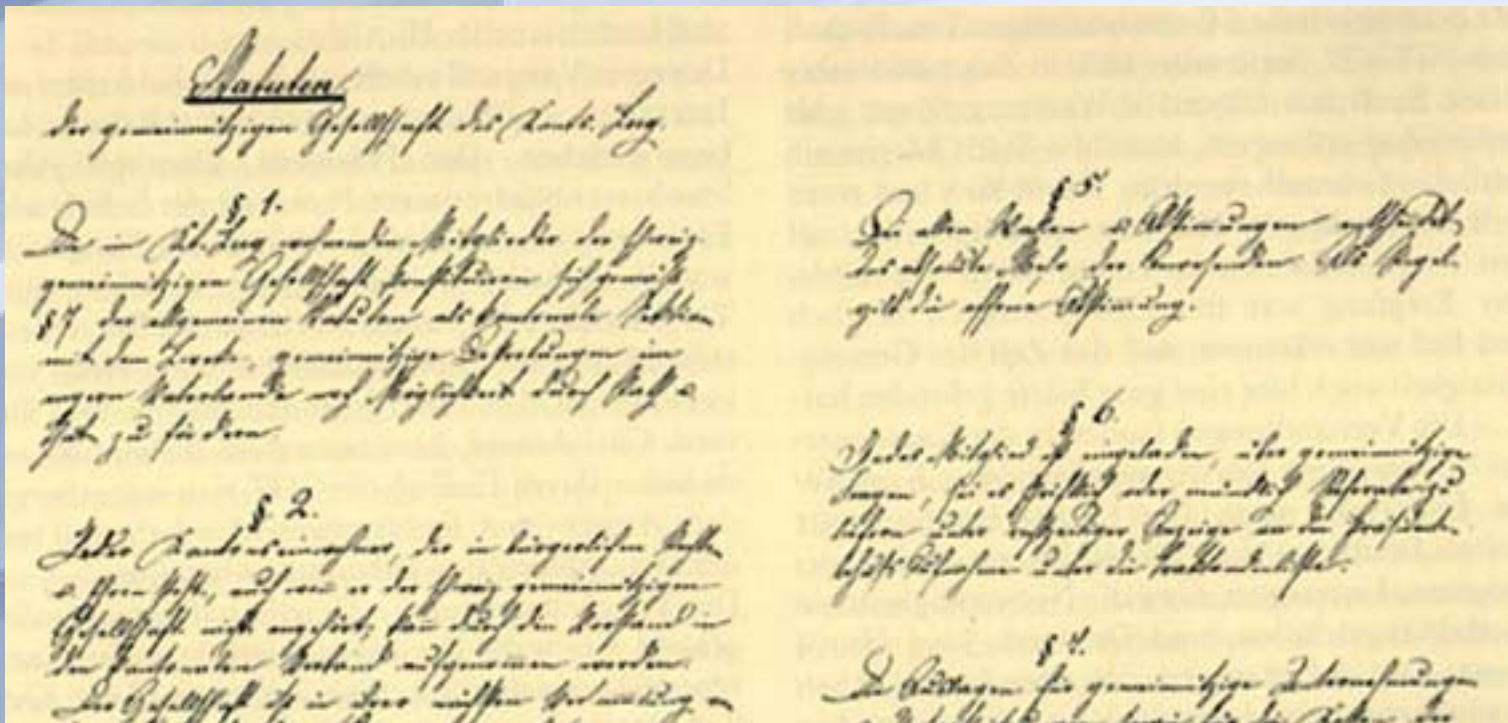 Statuten
der gemeinnützigen Gesellschaft des Kants. Zug.
§ 1.
Die im Kt. Zug wohnenden Mitglieder der schweiz.
gemeinnützigen Gesellschaft konstituieren sich gemäß
§ 7 der allgemeinen Statuten als kantonale Sektion
mit dem Zwecke, gemeinnützige Bestrebungen im
engern Vaterlande nach Möglichkeit durch Rath u.
That zu fördern.
§ 2.
Jeder Kantonseinwohner, der in bürgerlichen Rechten
u. Ehren steht, auch wenn er der schweiz. gemeinnützigen
Gesellschaft nicht angehört, kann durch den Vorstand in
den kantonalen Verband aufgenommen werden.
Der Gesellschaft ist in ihrer nächsten Versammlung
§ 5.
Bei allen Wahlen u. Abstimmungen entscheidet
das absolute Mehr der Anwesenden. Als Regel
gilt die offene Abstimmung.
§ 6.
Jedes Mitglied ist eingeladen, über gemeinnützige
Fragen, sei es schriftlich oder mündlich Referate zu
liefern unter rechtzeitiger Anzeige an den Präsidenten
behufs Aufnahme unter die Traktandenliste.
§ 7.
Die Auslagen für gemeinnützige Unternehmungen